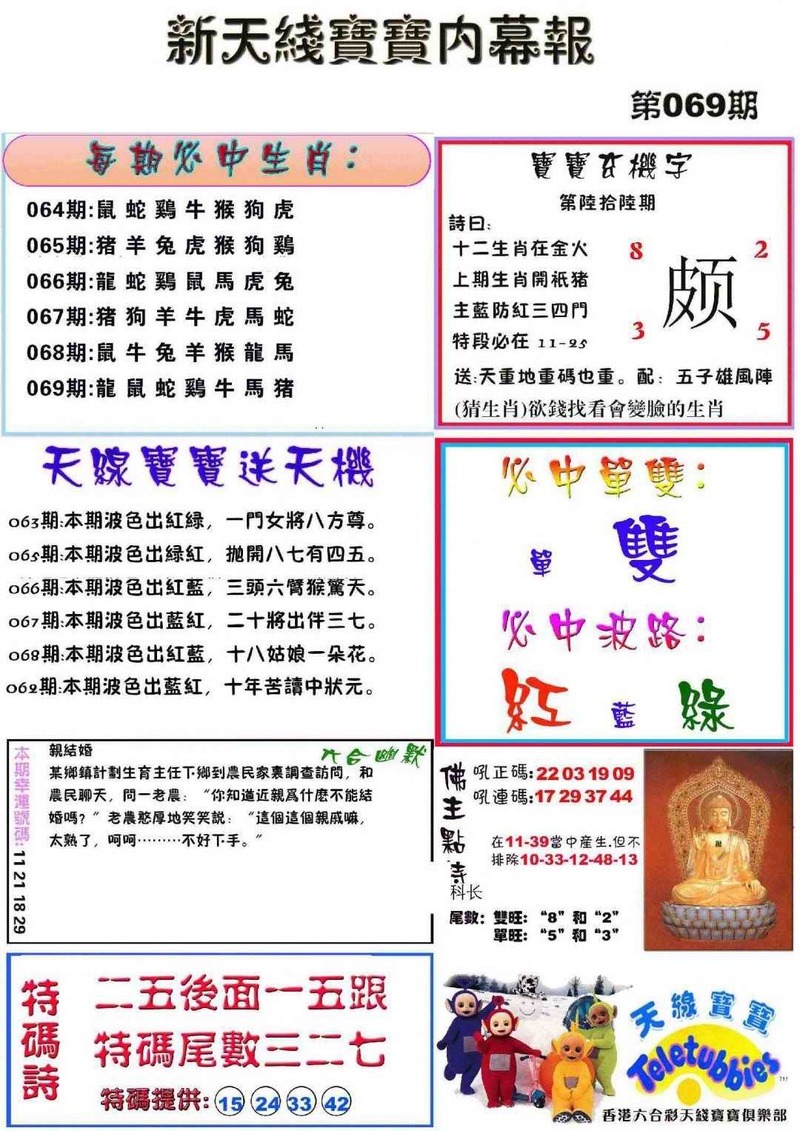 新天綫寶寶内幕報
第069期
每期必中生肖：
064期:鼠 蛇 鷄 牛 猴 狗 虎
065期:猪 羊 兔 虎 猴 狗 鷄
066期:龍 蛇 鷄 鼠 馬 虎 兔
067期:猪 狗 羊 牛 虎 馬 蛇
068期:鼠 牛 兔 羊 猴 龍 馬
069期:龍 鼠 蛇 鷄 牛 馬 猪
寶寶玄機字
第陸拾陸期
詩曰:
十二生肖在金火
上期生肖開祇猪
主藍防紅三四門
特段必在 11-25
8 2
颇
3 5
送:天重地重碼也重。配：五子雄風陣
(猜生肖)欲錢找看會變臉的生肖
天線寶寶送天機
063期:本期波色出紅緑，一門女將八方尊。
065期:本期波色出緑紅，抛開八七有四五。
066期:本期波色出紅藍，三頭六臂猴驚天。
067期:本期波色出藍紅，二十將出伴三七。
068期:本期波色出紅藍，十八姑娘一朵花。
062期:本期波色出藍紅，十年苦讀中狀元。
必中單雙：
單 雙
必中波路：
紅 藍 綠
本期幸運號碼:11 21 18 29
六合幽默
親結婚
某鄉鎮計劃生育主任下鄉到農民家裏調查訪問，和
農民聊天，問一老農：“你知道近親爲什麽不能結
婚嗎？”老農憨厚地笑笑説：“這個這個親戚嘛，
太熟了，呵呵………不好下手。”
佛主點特
科长
吼正碼:22 03 19 09
吼連碼:17 29 37 44
在11-39當中産生.但不
排除10-33-12-48-13
尾數：雙旺：“8”和“2”
單旺：“5”和“3”
特碼詩
二五後面一五跟
特碼尾數三二七
特碼提供: 15 24 33 42
天線寶寶
Teletubbies
TM
香港六合彩天綫寶寶俱樂部